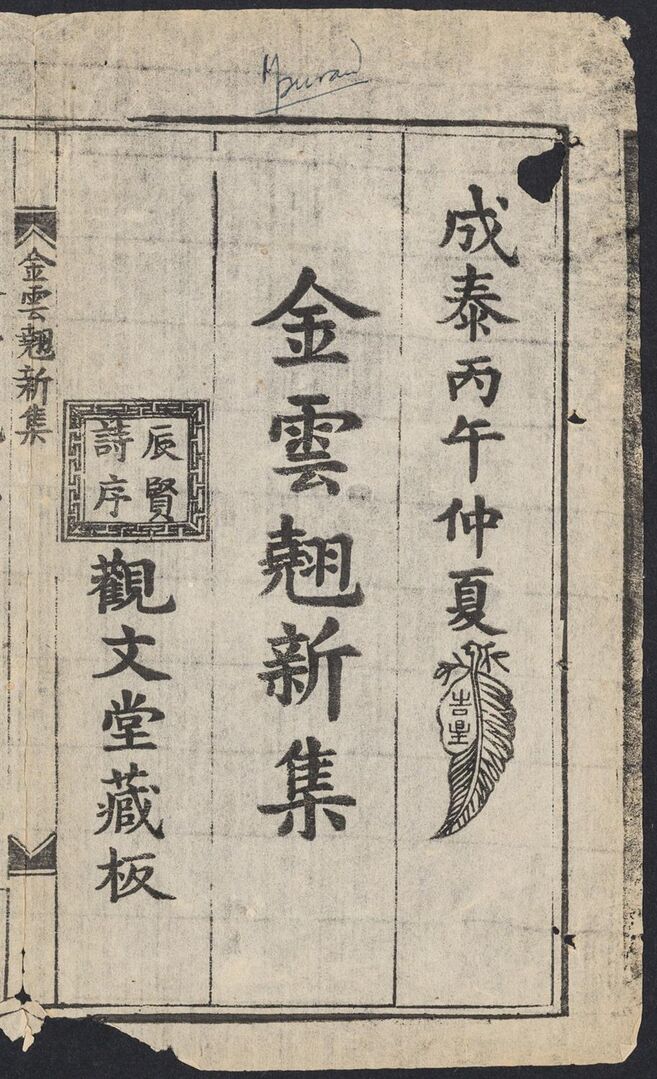 成泰丙午仲夏
吉星
金雲翹新集
辰賢
詩序
觀文堂藏板
金雲翹新集